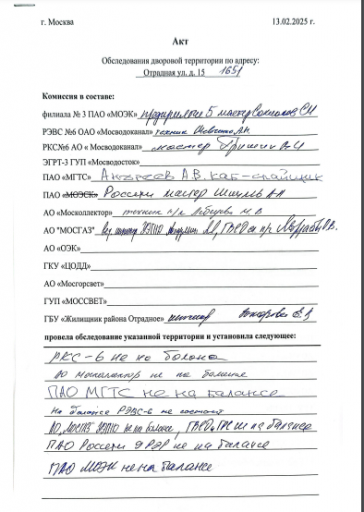 г. Москва 13.02.2025 г.
Акт
Обследования дворовой территории по адресу:
Отрадная ул. д. 15 1651
Комиссия в составе:
филиала № 3 ПАО «МОЭК» предприятия 5 мастер
РЭВС №6 ОАО «Мосводоканал» техник
РКС№6 АО « Мосводоканал» мастер Гришин
ЭГРТ-3 ГУП «Мосводосток»
ПАО «МГТС» Андреев А.В. каб-спайщик
ПАО «МОЭСК» Россети мастер
АО «Москоллектор» техник
АО "МОСГАЗ"
АО «ОЭК»
ГКУ «ЦОДД»
АО «Мосгорсвет»
ГУП «МОССВЕТ»
ГБУ «Жилищник района Отрадное» инженер
провела обследование указанной территории и установила следующее:
РКС-6 не на балансе
АО Москоллектор не на балансе
ПАО МГТС не на балансе
На балансе РЭВС-6 не состоит
не на балансе, не на балансе
ПАО Россети 9 РЭР не на балансе
ПАО МОЭК не на балансе